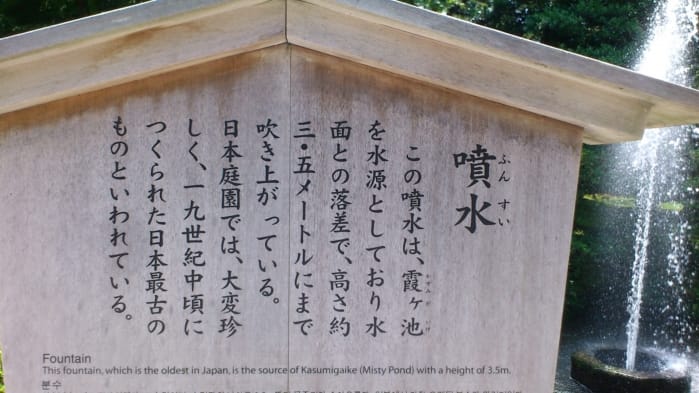 噴水
ふんすい
この噴水は、霞ヶ池
を水源としており水
面との落差で、高さ約
三・五メートルにまで
吹き上がっている。
日本庭園では、大変珍
しく、一九世紀中頃に
つくられた日本最古の
ものといわれている。
Fountain
This fountain, which is the oldest in Japan, is the source of Kasumigaike (Misty Pond) with a height of 3.5m.
분수